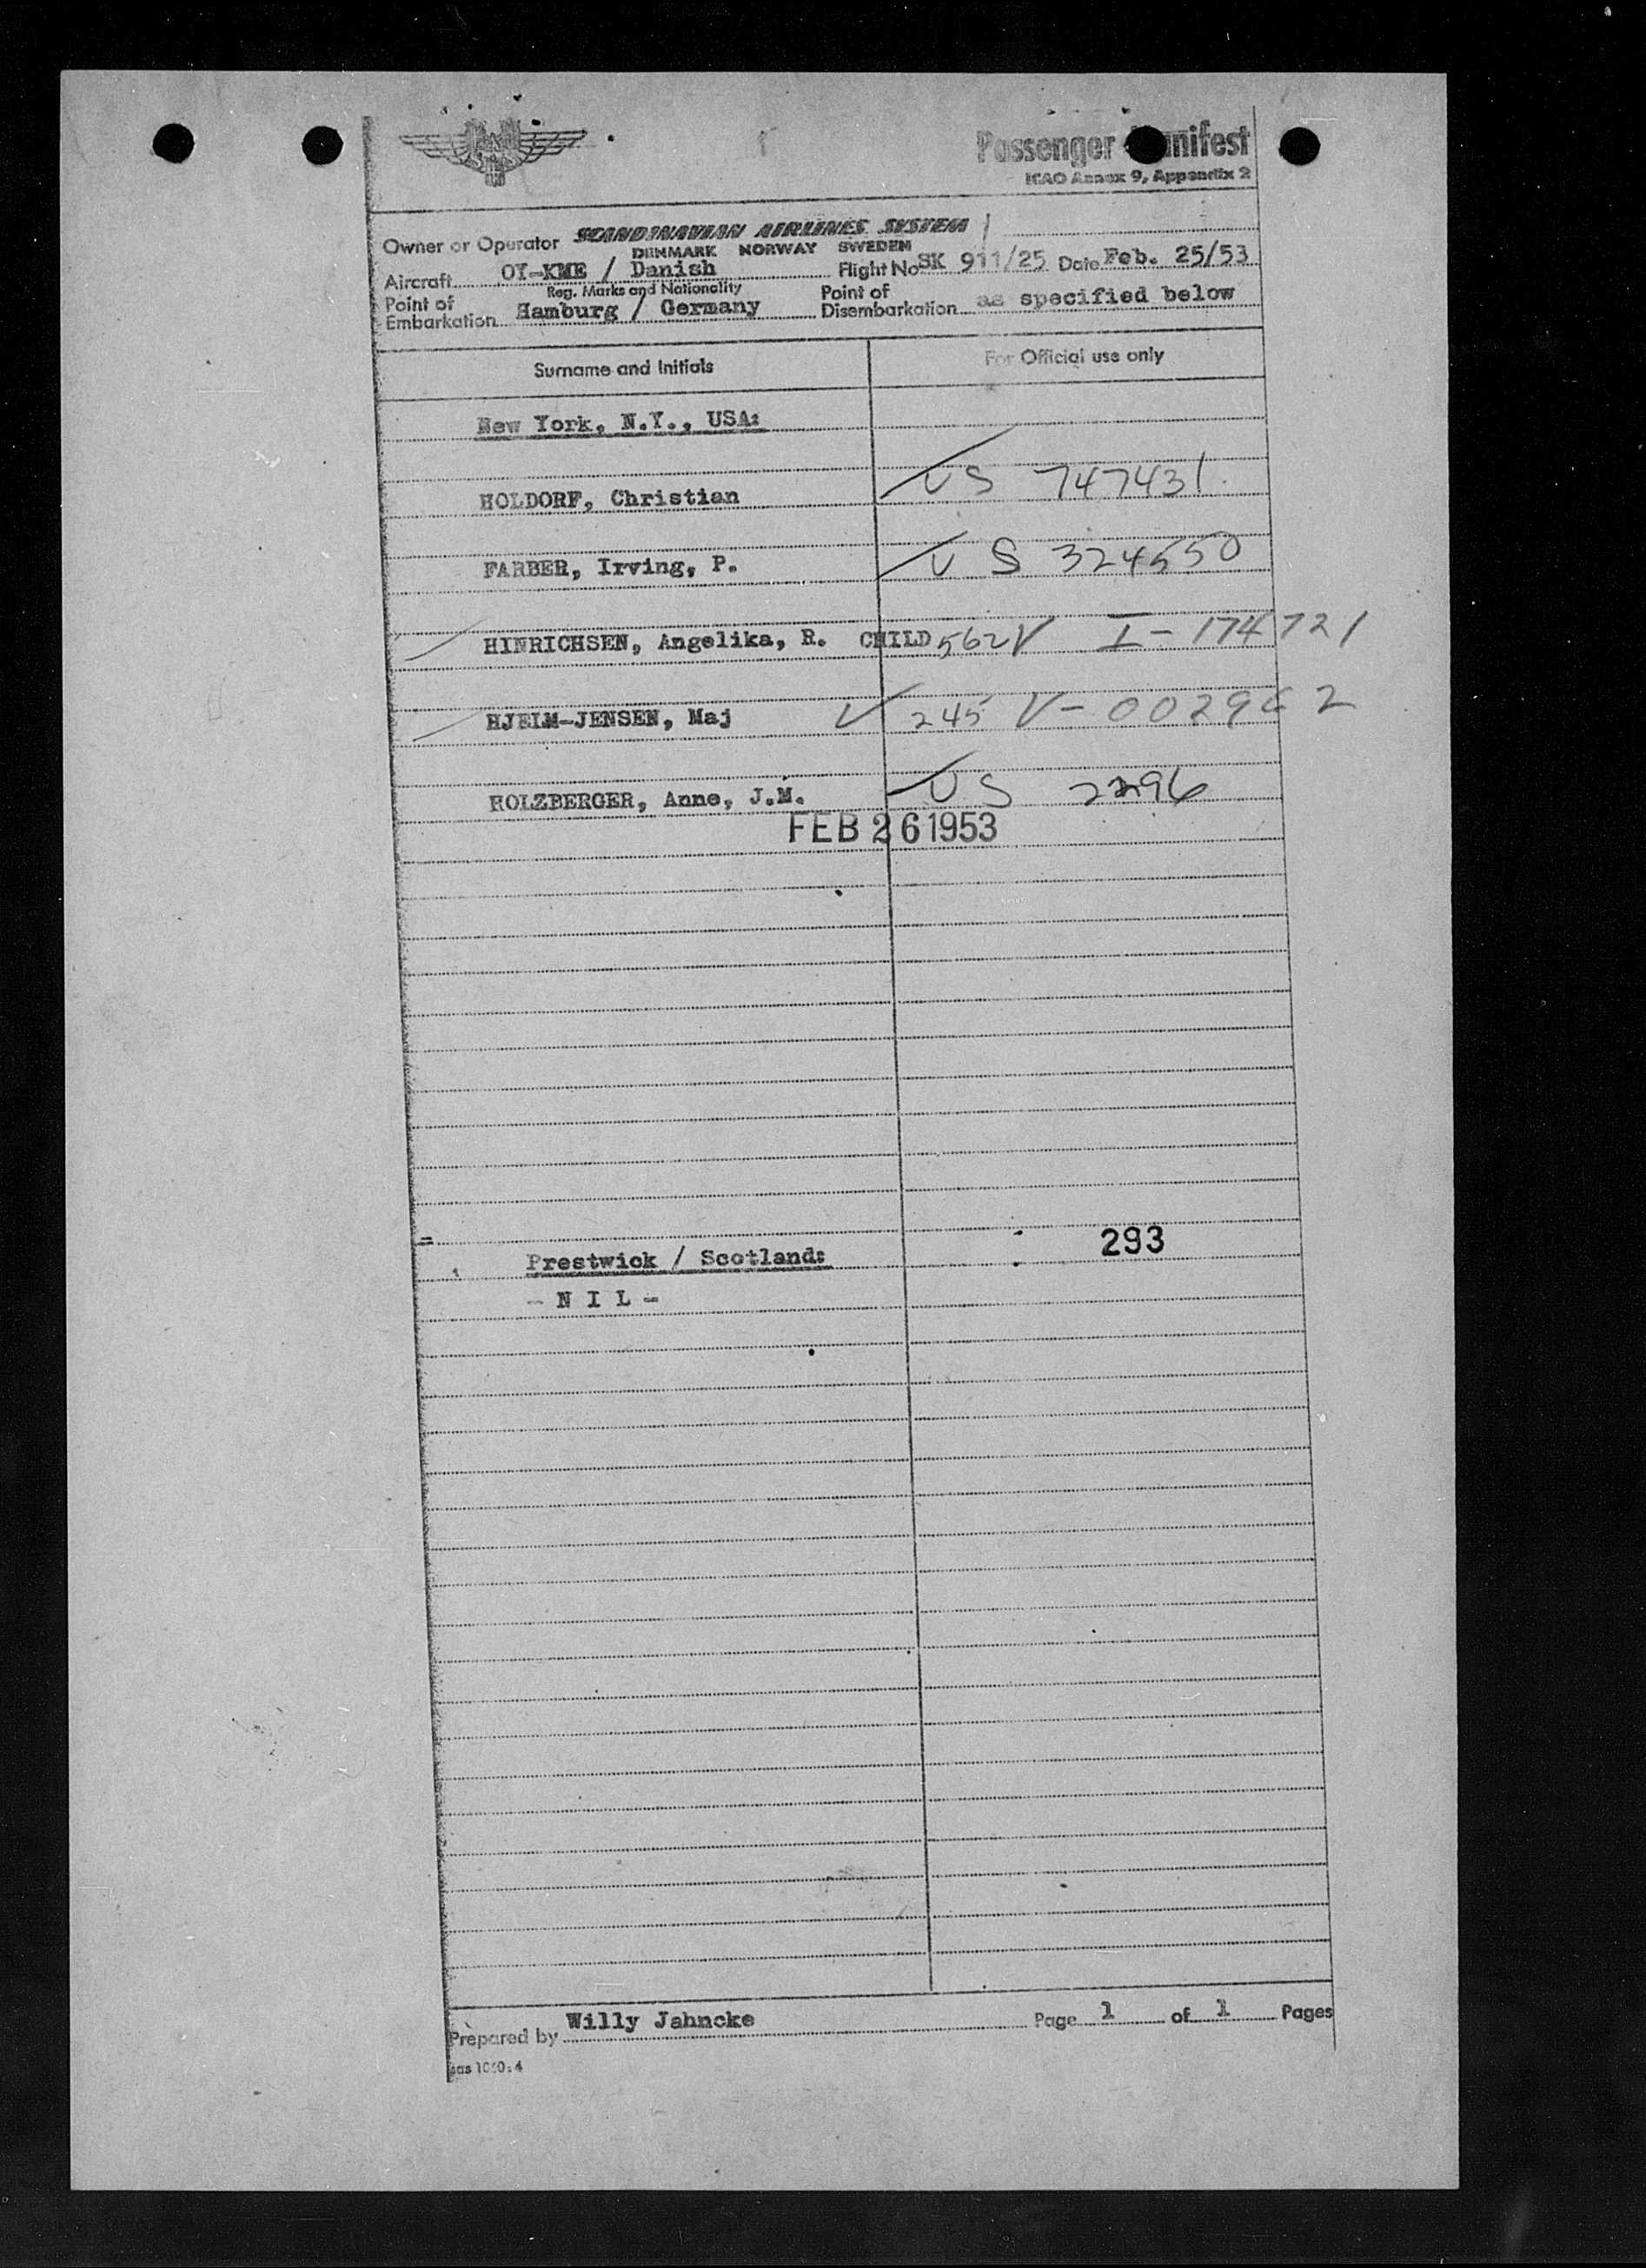 Passenger Manifest
ICAO Annex 9, Appendix 2
Owner or Operator SCANDINAVIAN AIRLINES SYSTEM
DENMARK NORWAY SWEDEN
Aircraft OY-KME / Danish Flight No SK 911/25 Date Feb. 25/53
Reg. Marks and Nationality
Point of Embarkation Hamburg / Germany Point of Disembarkation as specified below
Surname and Initials For Official use only
New York, N.Y., USA:
HOLDORF, Christian US 747431
FARBER, Irving, P. US 324550
HINRICHSEN, Angelika, R. CHILD 562V I-174721
HJELM-JENSEN, Maj 245 V-002962
HOLZBERGER, Anne, J.M. US 2296
FEB 26 1953
293
Prestwick / Scotland:
- N I L -
Prepared by Willy Jahncke Page 1 of 1 Pages